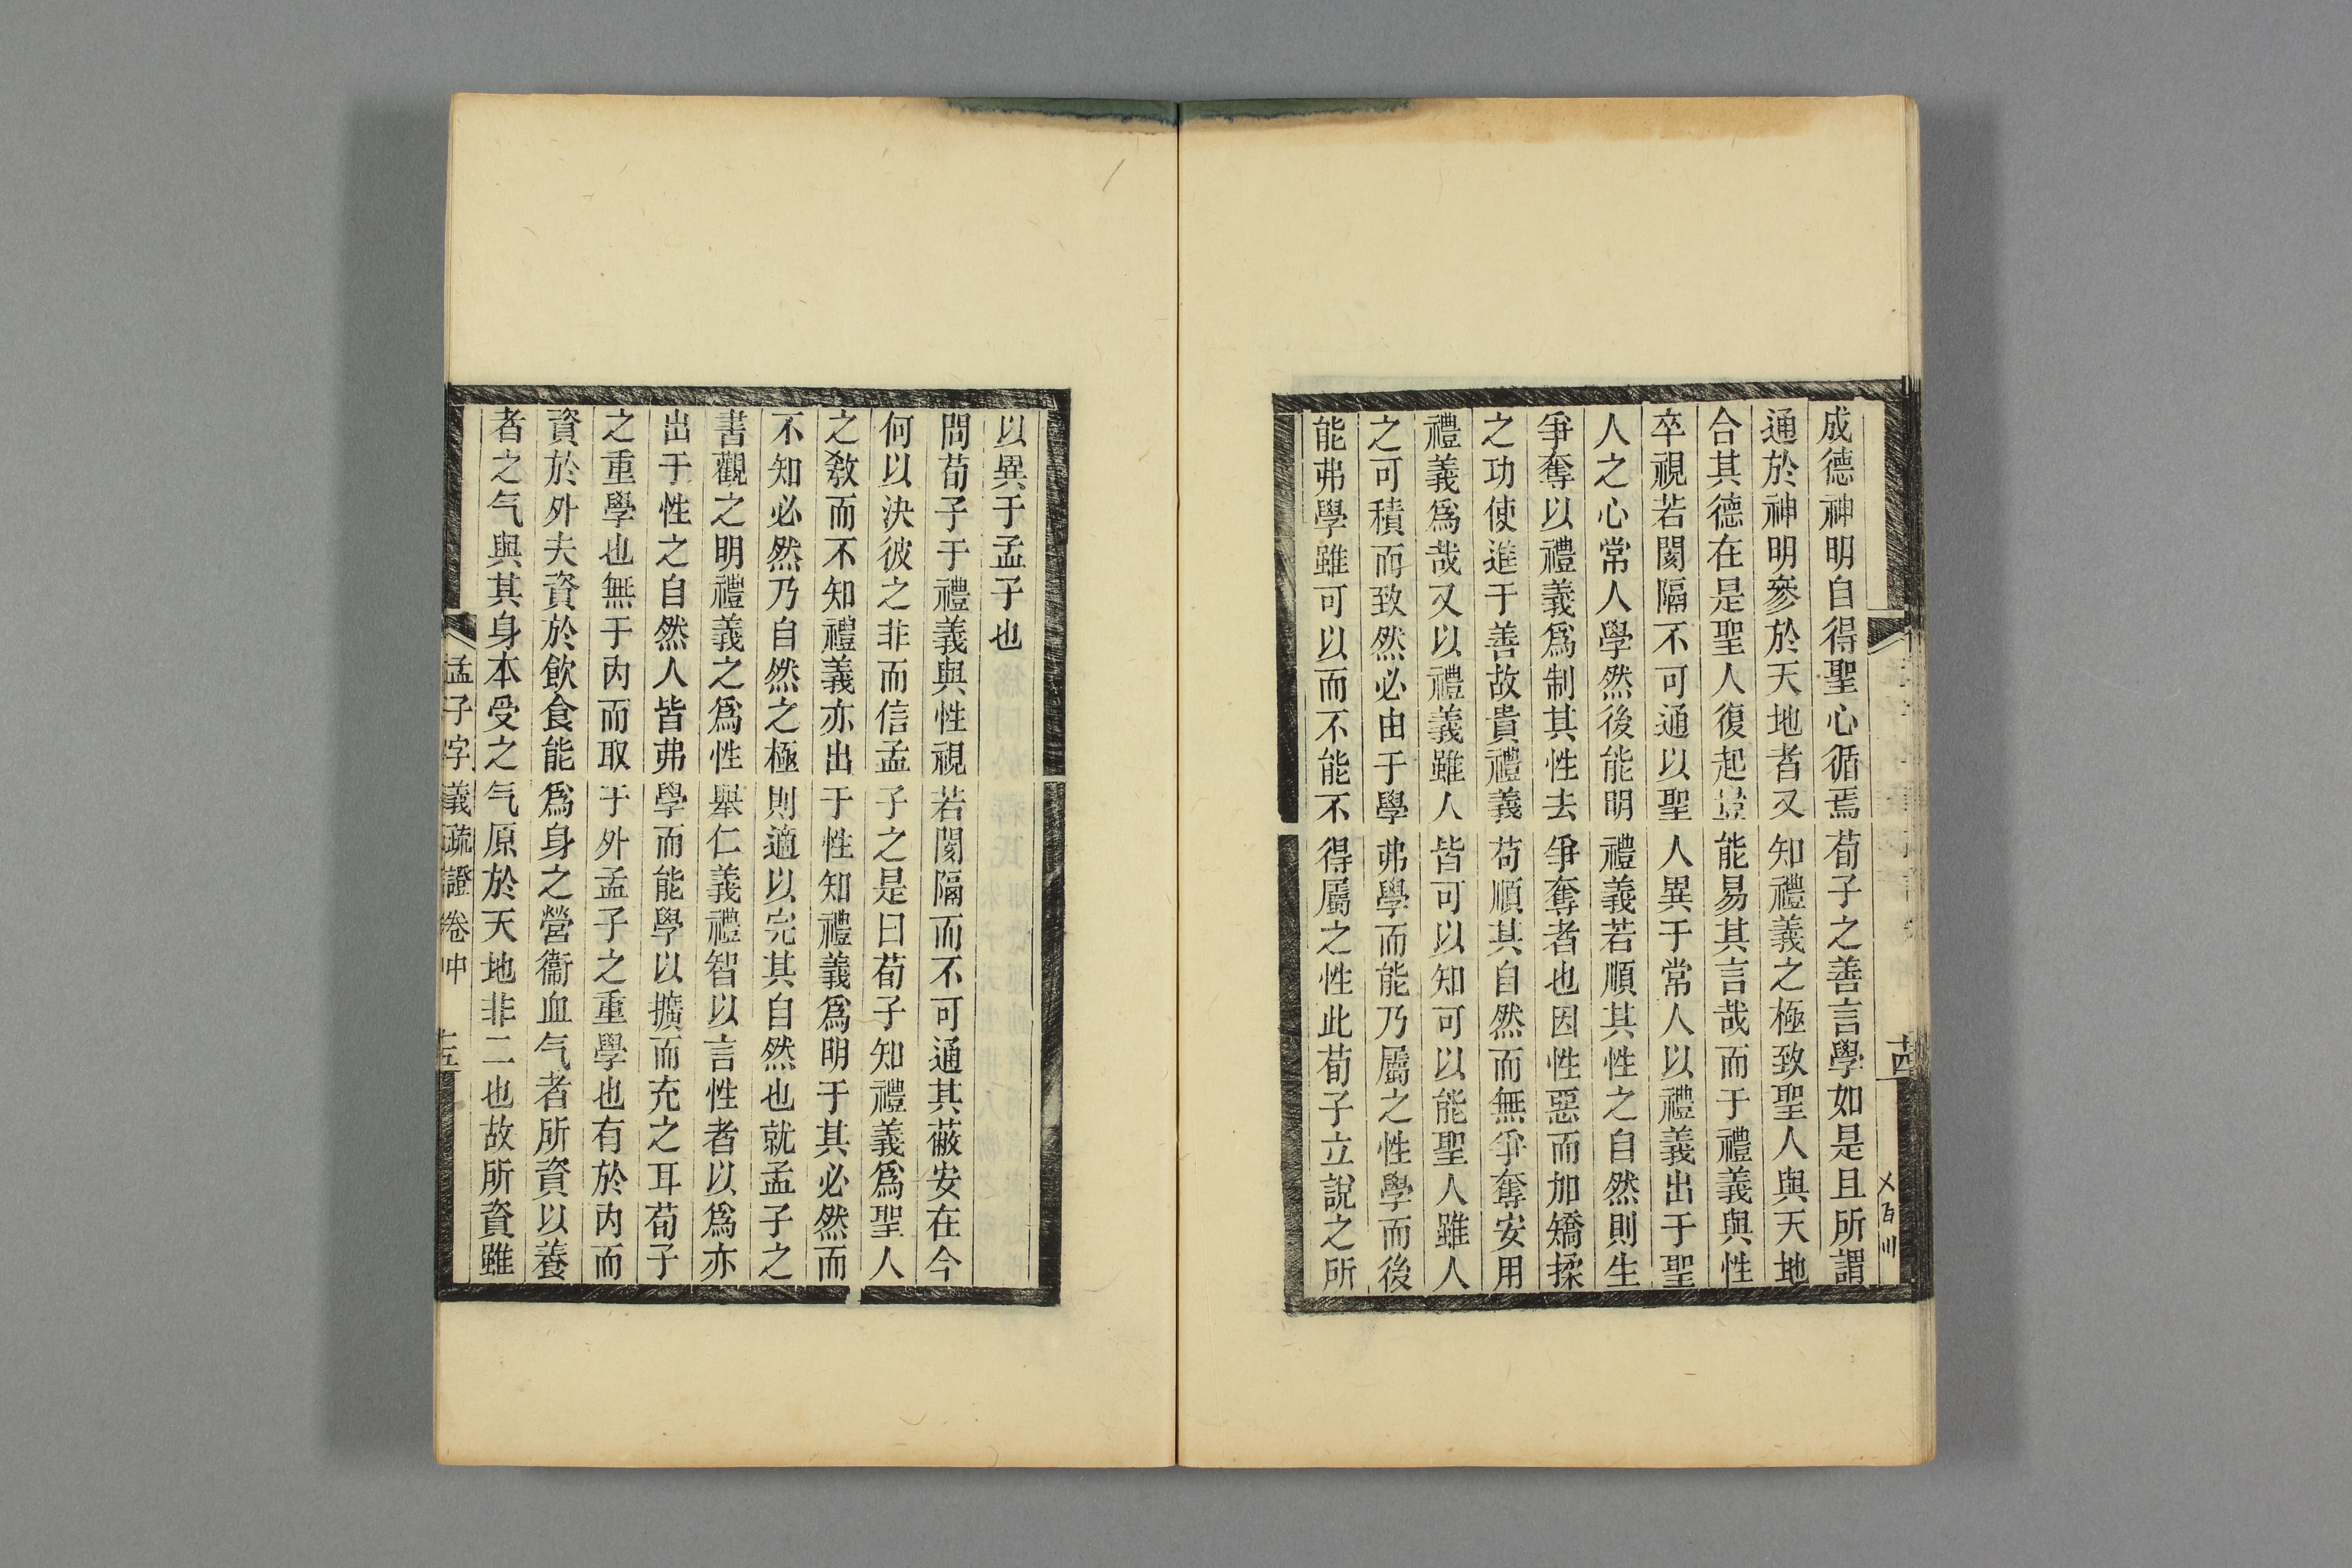 成德神明自得聖心循焉荀子之善言學如是且所謂
通於神明參於天地者又知禮義之極致聖人與天地
合其德在是聖人復起豈能易其言哉而于禮義與性
卒視若閡隔不可通以聖人異于常人以禮義出于聖
人之心常人學然後能明禮義若順其性之自然則生
爭奪以禮義爲制其性去爭奪者也因性惡而加矯揉
之功使進于善故貴禮義苟順其自然而無爭奪安用
禮義爲哉又以禮義雖人皆可以知可以能聖人雖人
之可積而致然必由于學弗學而能乃屬之性學而後
能弗學雖可以而不能不得屬之性此荀子立說之所
十四
以異于孟子也
問荀子于禮義與性視若閡隔而不可通其蔽安在今
何以決彼之非而信孟子之是曰荀子知禮義爲聖人
之敎而不知禮義亦出于性知禮義爲明于其必然而
不知必然乃自然之極則適以完其自然也就孟子之
書觀之明禮義之爲性舉仁義禮智以言性者以爲亦
出于性之自然人皆弗學而能學以擴而充之耳荀子
之重學也無于内而取于外孟子之重學也有於内而
資於外夫資於飲食能爲身之營衞血气者所資以養
者之气與其身本受之气原於天地非二也故所資雖
孟子字義疏證卷中
十五